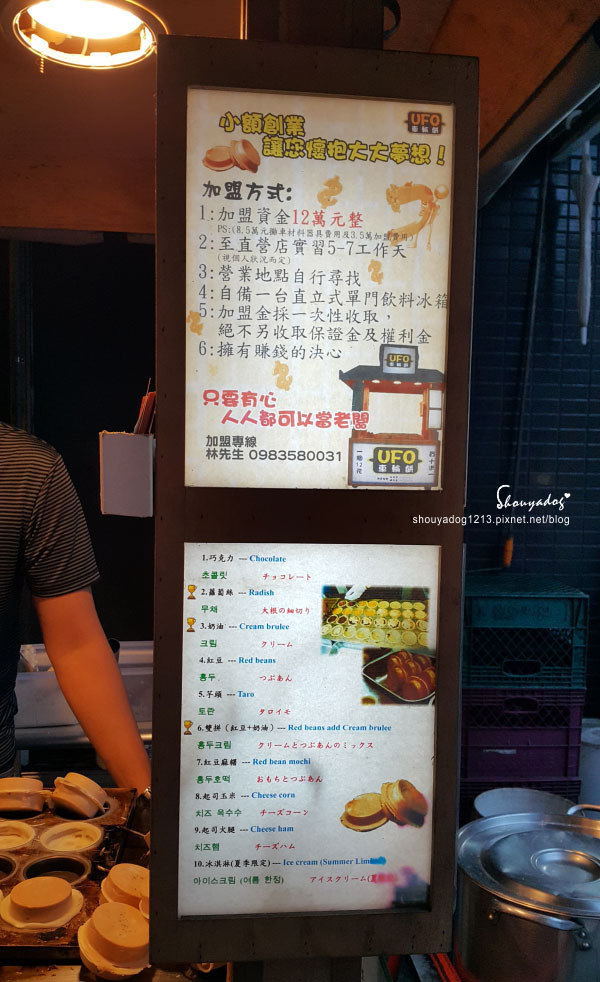 小額創業
讓您懷抱大大夢想！
UFO
車輪餅
加盟方式:
1:加盟資金12萬元整
PS:(8.5萬元攤車材料器具費用及3.5萬加盟費用)
2:至直營店實習5-7工作天
(視個人狀況而定)
3:營業地點自行尋找
4:自備一台直立式單門飲料冰箱
5:加盟金採一次性收取，
絕不另收取保證金及權利金
6:擁有賺錢的決心
只要有心
人人都可以當老闆
加盟專線
林先生 0983580031
UFO
UFO
車輪餅
Shouyadog
shouyadog1213.pixnet.net/blog
1.巧克力 --- Chocolate
초콜릿 チョコレート
2.蘿蔔絲 --- Radish
무채 大根の細切り
3.奶油 --- Cream brulee
크림 クリーム
4.紅豆 --- Red beans
홍두 つぶあん
5.芋頭 --- Taro
토란 タロイモ
6.雙拼（紅豆+奶油）--- Red beans add Cream brulee
홍두크림 クリームとつぶあんのミックス
7.紅豆麻糬 --- Red bean mochi
홍두호떡 おもちとつぶあん
8.起司玉米 --- Cheese corn
치즈 옥수수 チーズコーン
9.起司火腿 --- Cheese ham
치즈햄 チーズハム
10.冰淇淋(夏季限定) --- Ice cream (Summer Lim
아이스크림 (여름 한정) アイスクリーム(